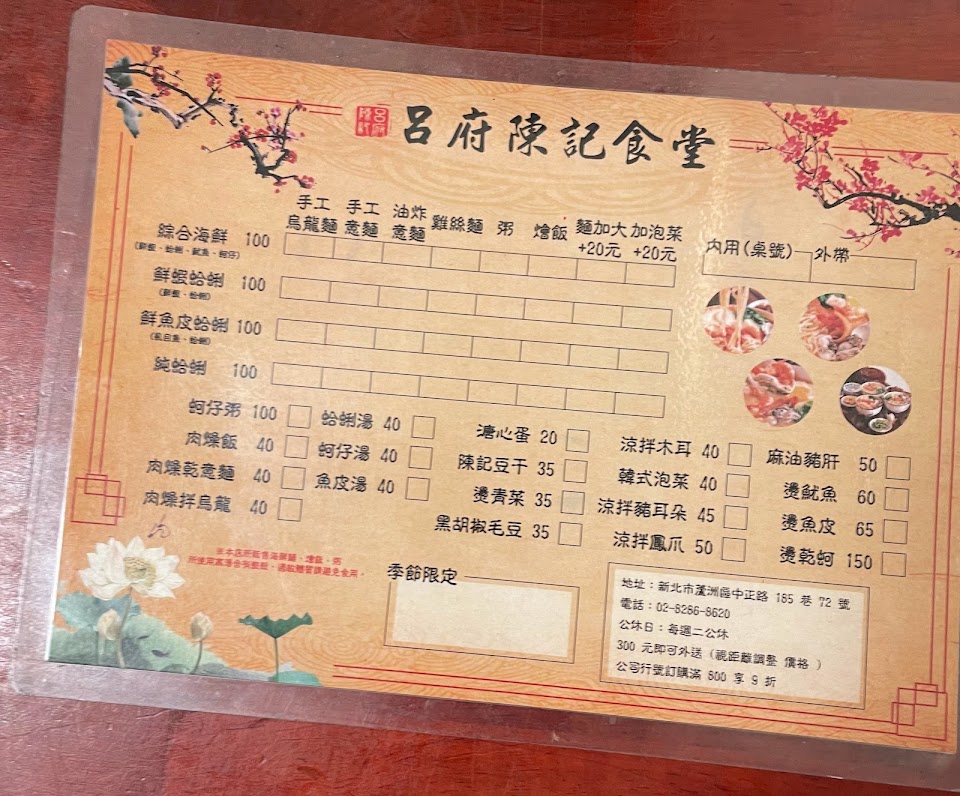 呂府陳記
呂府陳記食堂
手工烏龍麵 手工意麵 油炸意麵 雞絲麵 粥 燴飯 麵加大+20元 加泡菜+20元
內用(桌號) 外帶
綜合海鮮 100
(鮮蝦、蛤蜊、魷魚、蚵仔)
鮮蝦蛤蜊 100
(鮮蝦、蛤蜊)
鮮魚皮蛤蜊 100
(虱目魚、蛤蜊)
純蛤蜊 100
蚵仔粥 100
肉燥飯 40
肉燥乾意麵 40
肉燥拌烏龍 40
蛤蜊湯 40
蚵仔湯 40
魚皮湯 40
溏心蛋 20
陳記豆干 35
燙青菜 35
黑胡椒毛豆 35
涼拌木耳 40
韓式泡菜 40
涼拌豬耳朵 45
涼拌鳳爪 50
麻油豬肝 50
燙魷魚 60
燙魚皮 65
燙乾蚵 150
※本店所販售海鮮麵、燴飯、粥
所使用高湯含有蝦殼，過敏體質請避免食用。
季節限定
地址：新北市蘆洲區中正路 185 巷 72 號
電話：02-8286-8620
公休日：每週二公休
300 元即可外送 (視距離調整 價格 )
公司行號訂購滿 800 享 9 折